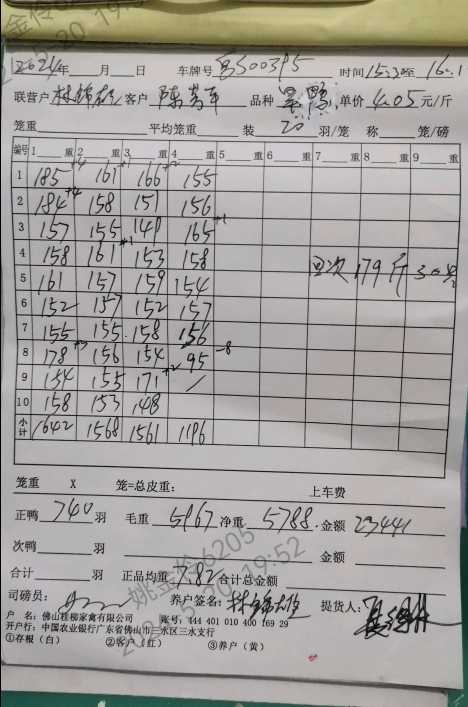 2024年 月 日 车牌号 S00395 时间15:3至16:1
联营户 客户 陈 品种 单价4.05元/斤
笼重 平均笼重 装20羽/笼 称 笼/磅
编号 1 重 2 重 3 重 4 重 5 重 6 重 7 重 8 重 9 重
1 185 +4 161 +1 166 +2 155
2 184 +4 158 151 156
3 157 155 149 165 +1
4 158 161 +1 153 158 回次179斤30只
5 161 157 159 154
6 152 157 152 157
7 155 155 158 156
8 178 +3 156 154 95 -8
9 154 155 171 +2 /
10 158 153 148
小计 1642 1568 1561 1196
笼重 X 笼=总皮重: 上车费
正鸭740羽 毛重5967净重5788金额23441
次鸭 羽 金额
合计 羽 正品均重7.82合计总金额
司磅员: 养户签名: 提货人:
户 名:佛山桂柳家禽有限公司 账号:444 401 010 400 169 29
开户行:中国农业银行广东省佛山市三水区三水支行
①存根(白) ②客户(红) ③养户(黄)
姚金伶6205
5-20 19:52